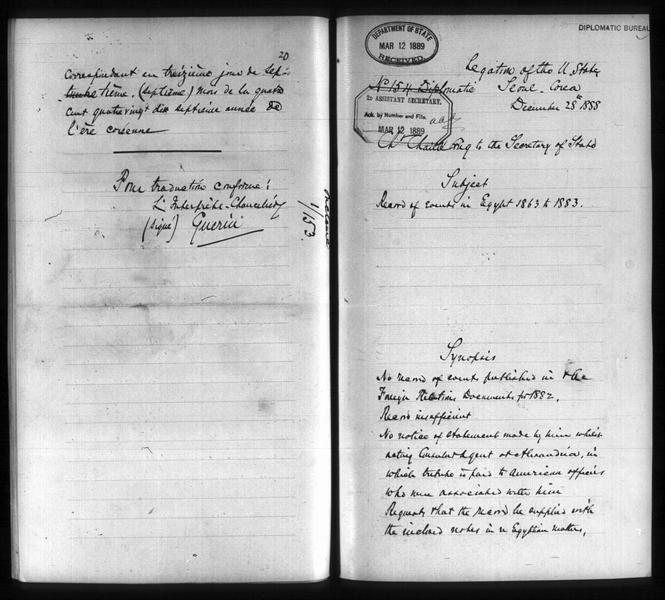 20
Correspondant en treizième jour de Sep-
tième. (Septième) mois de la quatre
cent quatre vingt dix septième année de
l'ère coréenne
Pour traduction conforme:
L'Interprète-Chancelier
(signé) Guérin
1/153.
DIPLOMATIC BUREAU
DEPARTMENT OF STATE
MAR 12 1889
RECEIVED
Legation of the U. States
No 154 Diplomatic Seoul Corea
December 28th 1888
2D ASSISTANT SECRETARY.
Ack. by Number and File.
MAR 12 1889
Mr Chaillé Long to the Secretary of State
Subject
Record of events in Egypt 1863 to 1883.
Synopsis
No record of events published in the
Foreign Relations Documents for 1882.
Record insufficient
No notice of statement made by him whilst
acting Consular Agent at Alexandria, in
which tribute is paid to American officers
who were associated with him
Requests that the record be supplied with
the inclosed notes in re Egyptian matters.